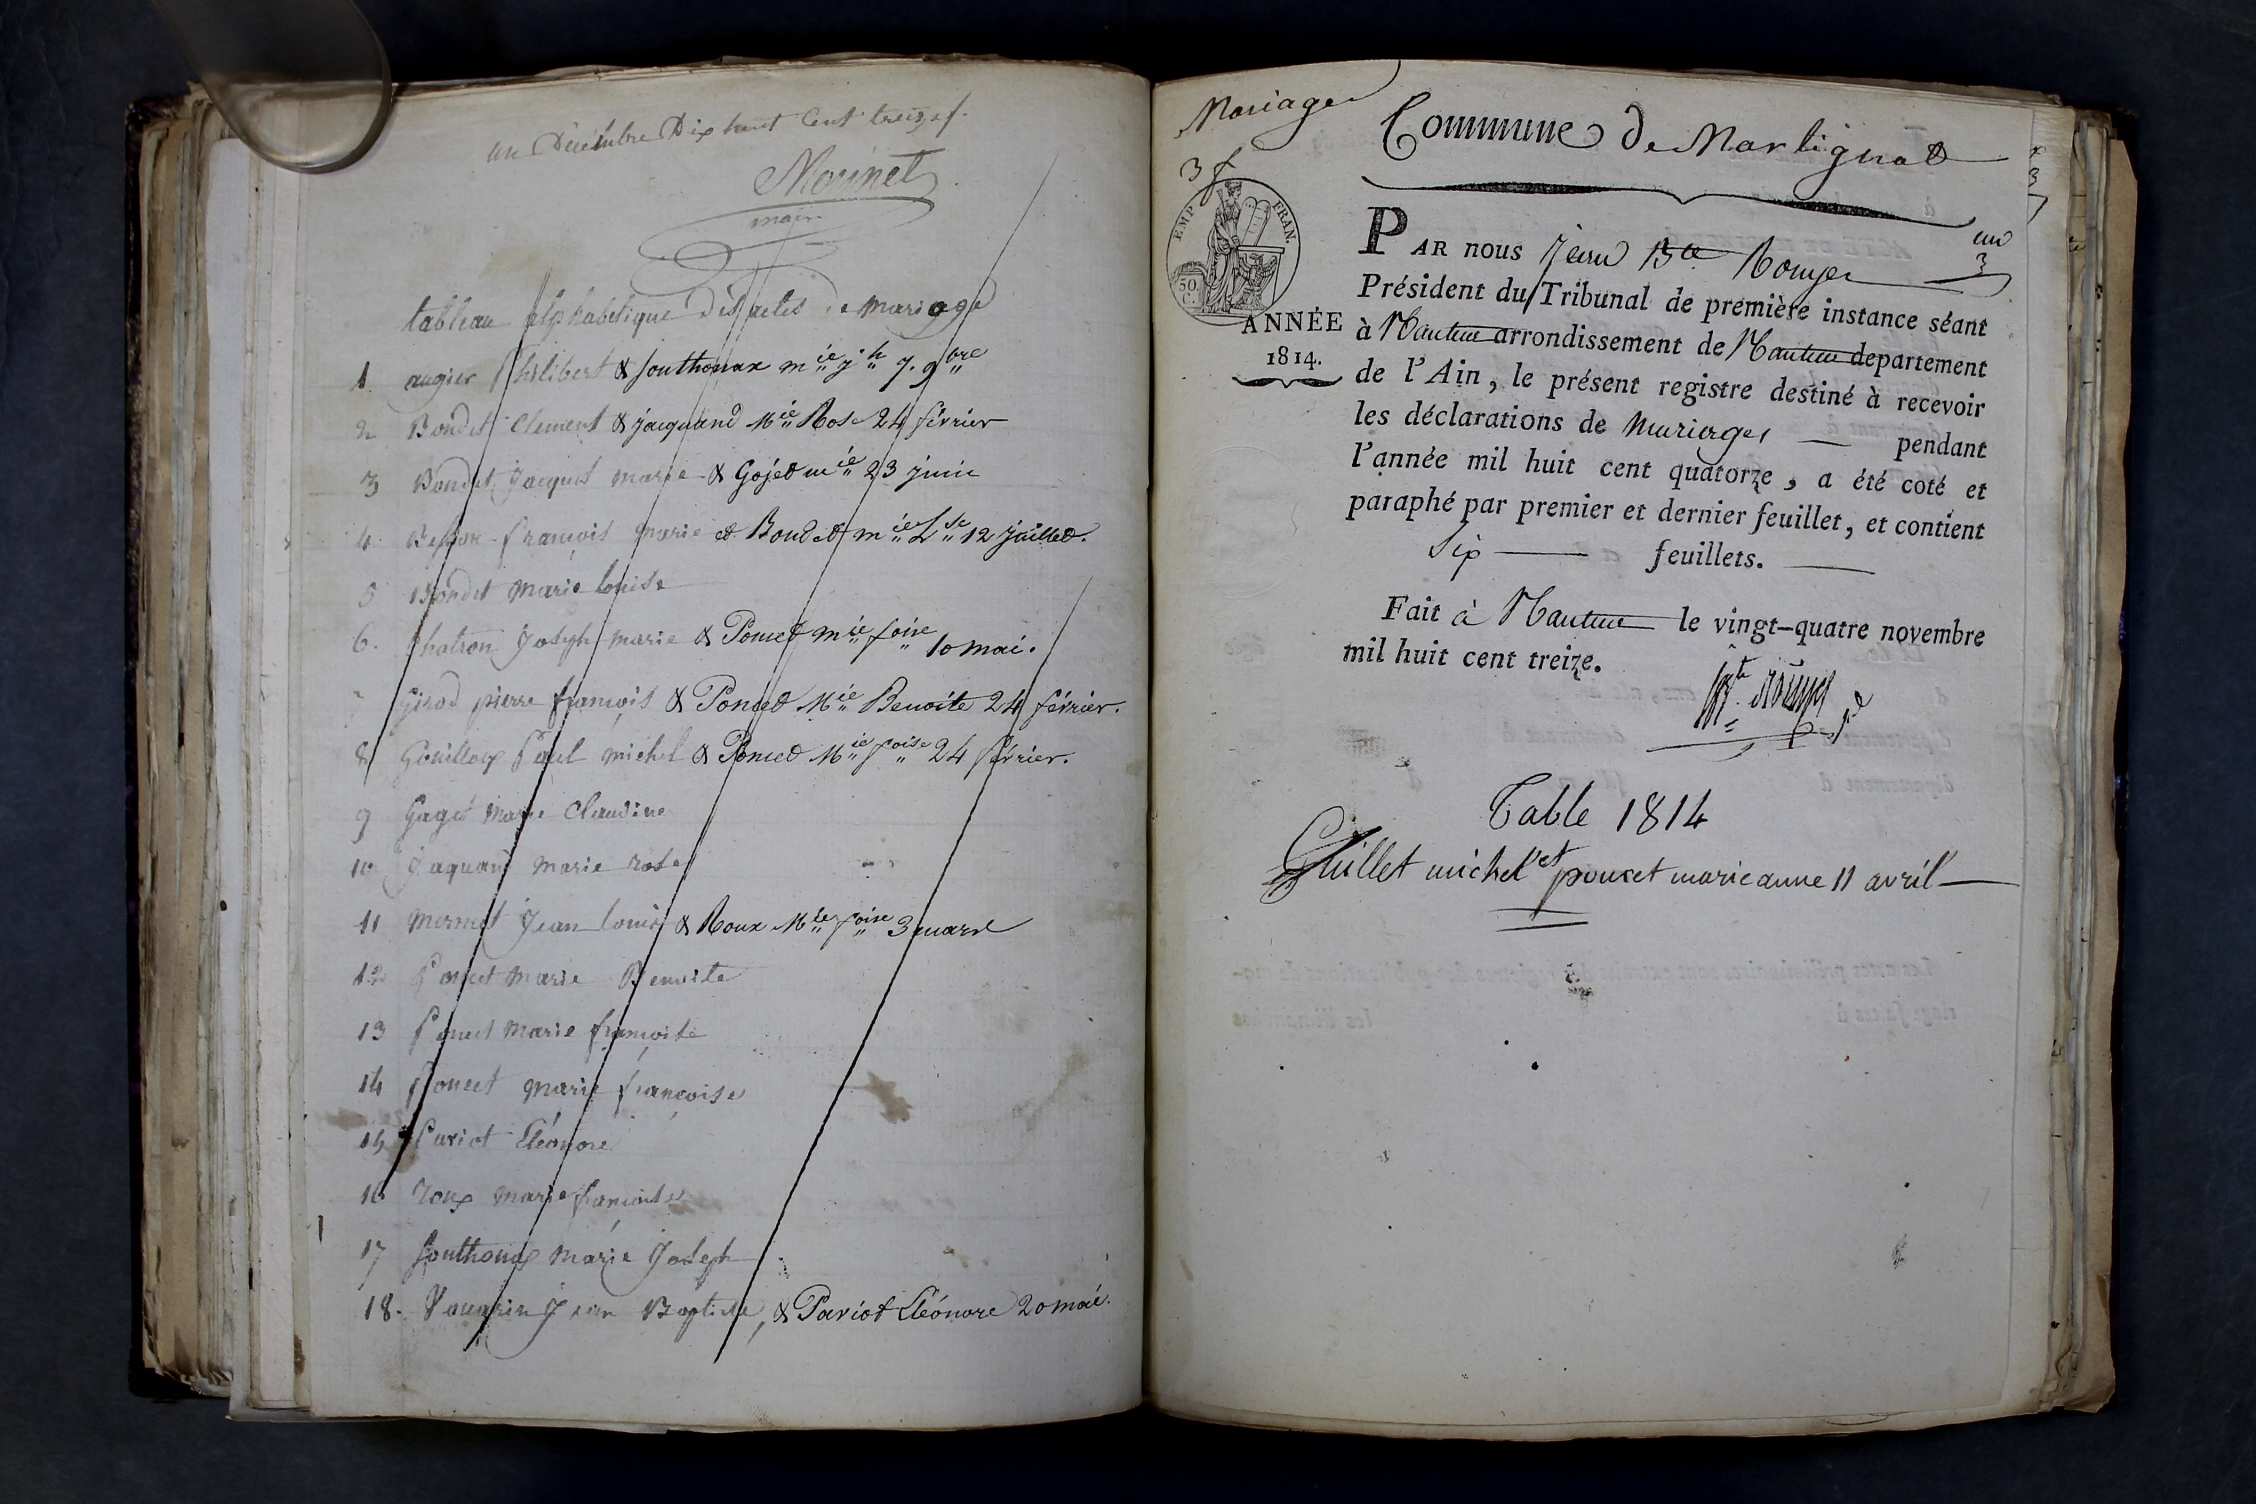 un Décembre Dix huit Cent treize f.
Morinet
maire
tableau alphabetique des actes de mariage
1 augier Philibert & Jouthonax mie jh 7. 9bre
2 Bondet Clement & jacquand Mie Rose 24 février
3 Bondet Jacques marie & Gojet mie 23 juin
4. Besson françois marie et Bondet mie Lse 12 juillet.
5 Bondet marie louise
6. Chatron Joseph marie & Poncet mie foise 10 mai.
Girod pierre françois & Poncet Mie Benoite 24 février.
8 Gouilloux Paul michel & Poncet Mie foise 24 février.
9 Gaget Marie Claudine
10 Jaquand marie rose
11 Mermet Jean louis & Roux Mie foise 3 mars
12 Poncet marie Benoite
13 Poncet Marie françoise
14 Poncet marie françoise
15 Pariot Eléonore
16 roux marie françoise
17 Jouthoux Marie Joseph
18. Jean Baptiste, & Pariot Eléonore 20 mai.
Mariages
Commune de Martignat
3 f
EMP. FRAN.
50. C.
un
3
ANNÉE
1814.
PAR nous Jean Bte Rouyer
Président du Tribunal de première instance séant
à Nantua arrondissement de Nantua departement
de l'Ain, le présent registre destiné à recevoir
les déclarations de Mariages — pendant
l'année mil huit cent quatorze, a été coté et
paraphé par premier et dernier feuillet, et contient
Six — feuillets. —
Fait à Nantua le vingt-quatre novembre
mil huit cent treize.
Table 1814
Guillet michel et poncet marie anne 11 avril —